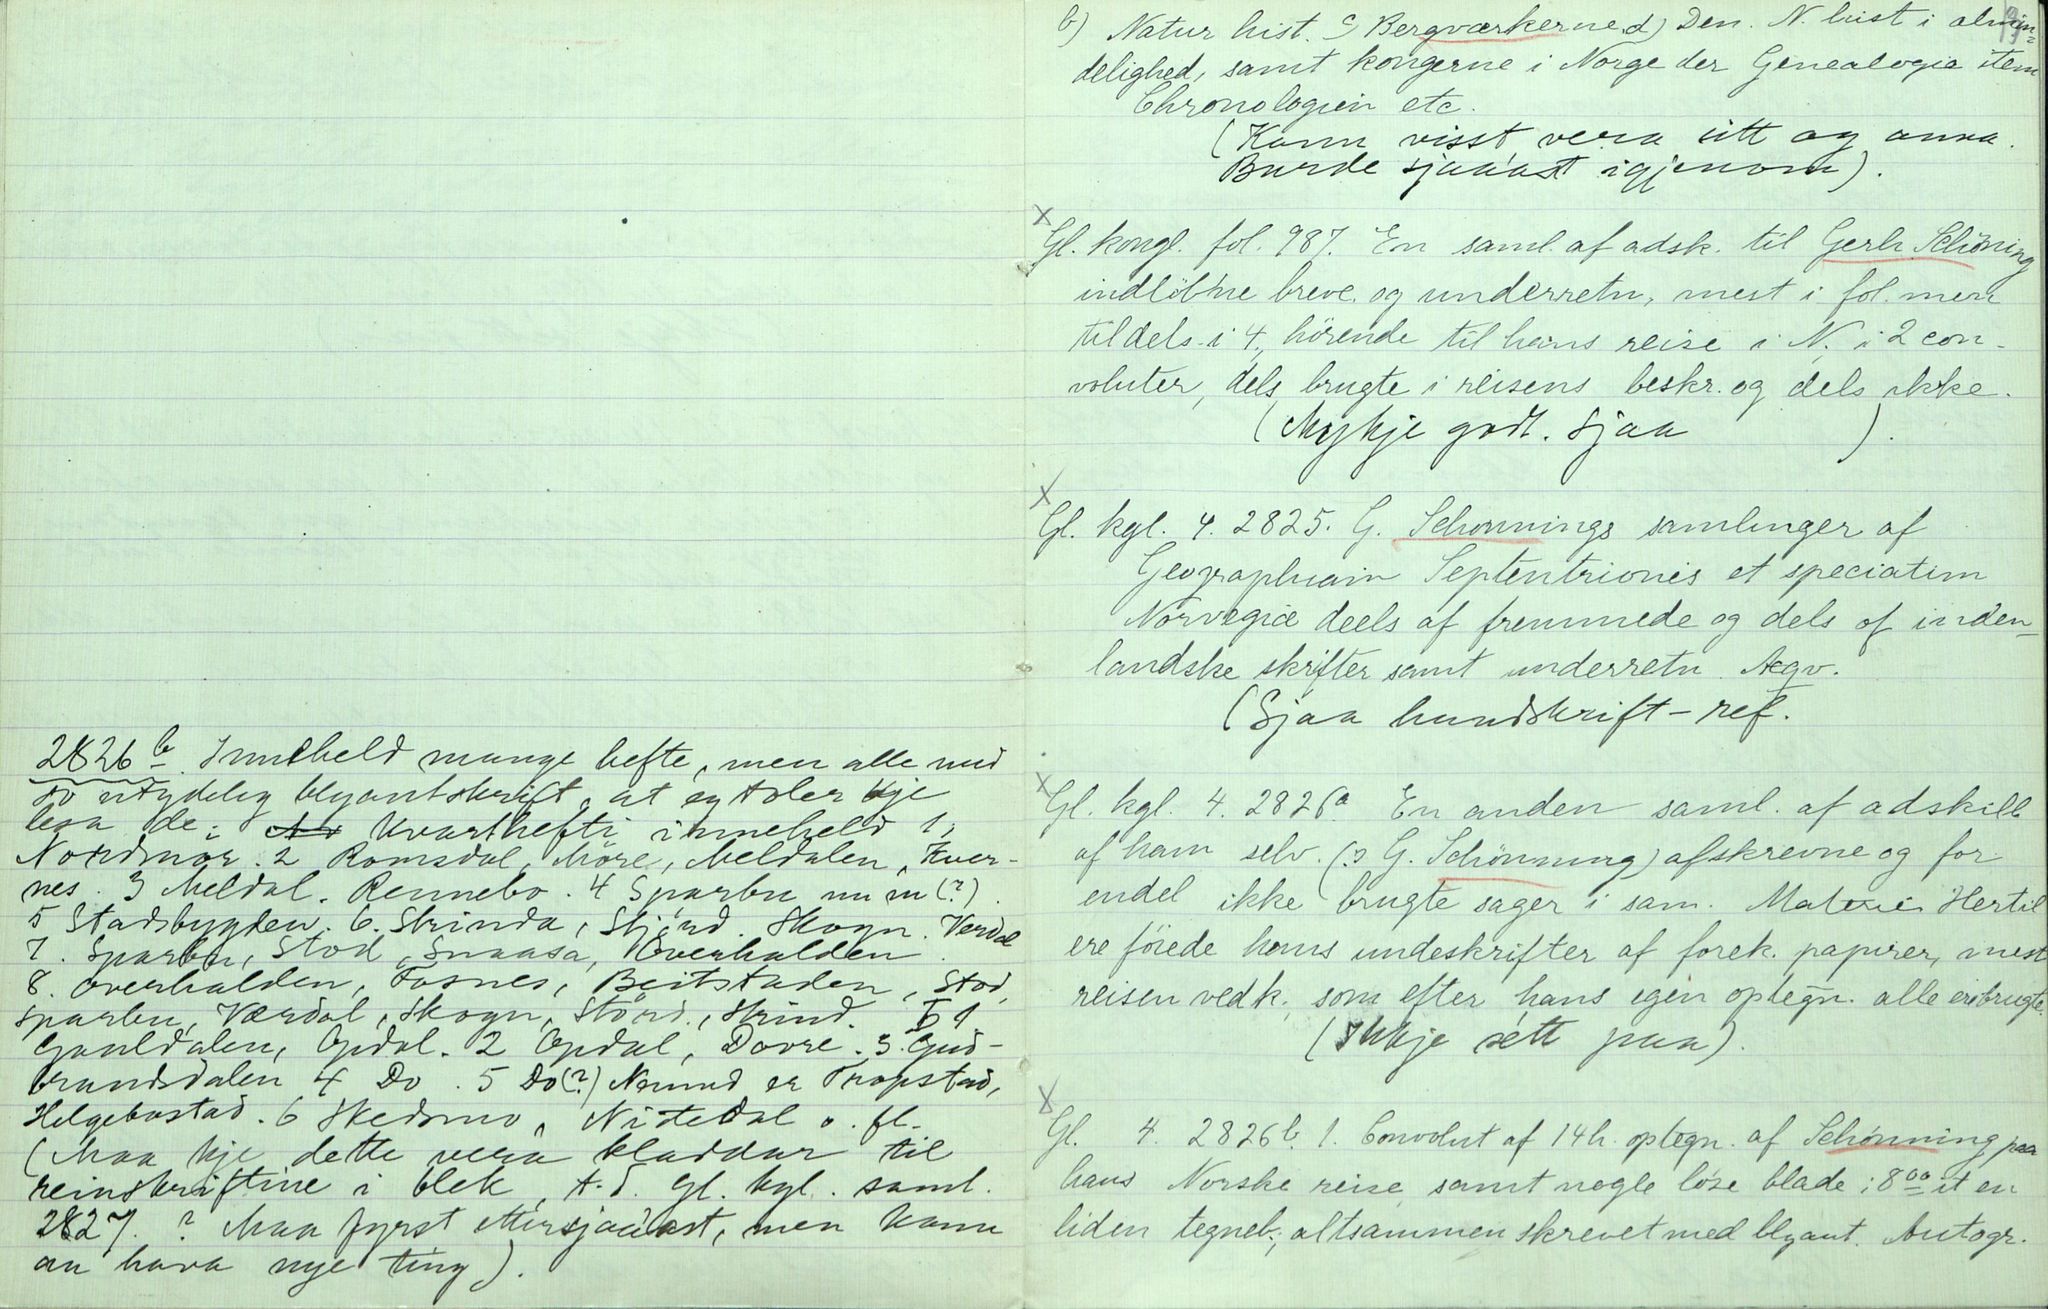 2826 b. Inneheld mange hefte, men alle med
so utydelig blyantskrift, at eg toler kje
lesa de. Kvarthefti inneheld 1,
Nordmør. 2 Romsdal, Møre, Meldalen, Kver-
nes. 3 Meldal. Rennebo. 4 Sparbu m m (?).
5 Stadsbygden. 6. Strinda, Stjørd. Skogn. Verdal
7. Sparbu, Stod, Snaasa, Overhalden.
8. Overhalden, Fosnes, Beitstaden, Stod,
Sparbu, Værdal, Skogn, Størd., Strind. 1
Gauldalen, Opdal. 2 Opdal, Dovre. 3 Gud-
brandsdalen 4 Do. 5 Do (?) Nemnd er Trøgstad,
Helgebostad. 6 Skedsmo, Nitedal o. fl.
(Maa kje dette vera kladdar til
reinskriftine i blek, t. d. Gl. kgl. saml.
2827. ? Maa fyrst ettersjaaast, men kann
au hava nye ting).
b) Natur hist. c) Bergværkerne. d) Den. N. hist i almin=
delighed, samt kongerne i Norge der Genealogie item
Chronologien etc.
(Kann visst vera eitt og anna.
Burde sjaaast igjenom).
x
Gl. kongl. fol. 987. En saml. af adsk. til Gerh. Schöning
indløbne breve og underretn, mest i fol. men
tildels i 4., hörende til hans reise i N. i 2 con-
voluter, dels brugte i reisens beskr. og dels ikke.
(Mykje godt. Sjaa ).
x
Gl. kgl. 4. 2825. G. Schønnings samlinger af
Geographiam Septentrionis et speciatim
Norvegiæ deels af fremmede og dels af inden-
landske skrifter samt underretn. Aegv.
(Sjaa hundskrift-ref.
x
Gl. kgl. 4. 2826a En anden saml. af adskill
af ham selv. (: G. Schönning) afskrevne og for
endel ikke brugte sager i sam. Materie Hertil
ere föiede hans undeskrifter af forsk. papirer, mest
reisen vedk., som efter hans egen optegn. alle ere brugte.
(Ikkje sett paa).
x
Gl. 4. 2826 b. 1. Convolut af 14 h. optegn. af Schönning paa
hans Norske reise samt nogle löse blade i 8vo it en
liden tegneb.; altsammen skrevet med blyant. Autogr.